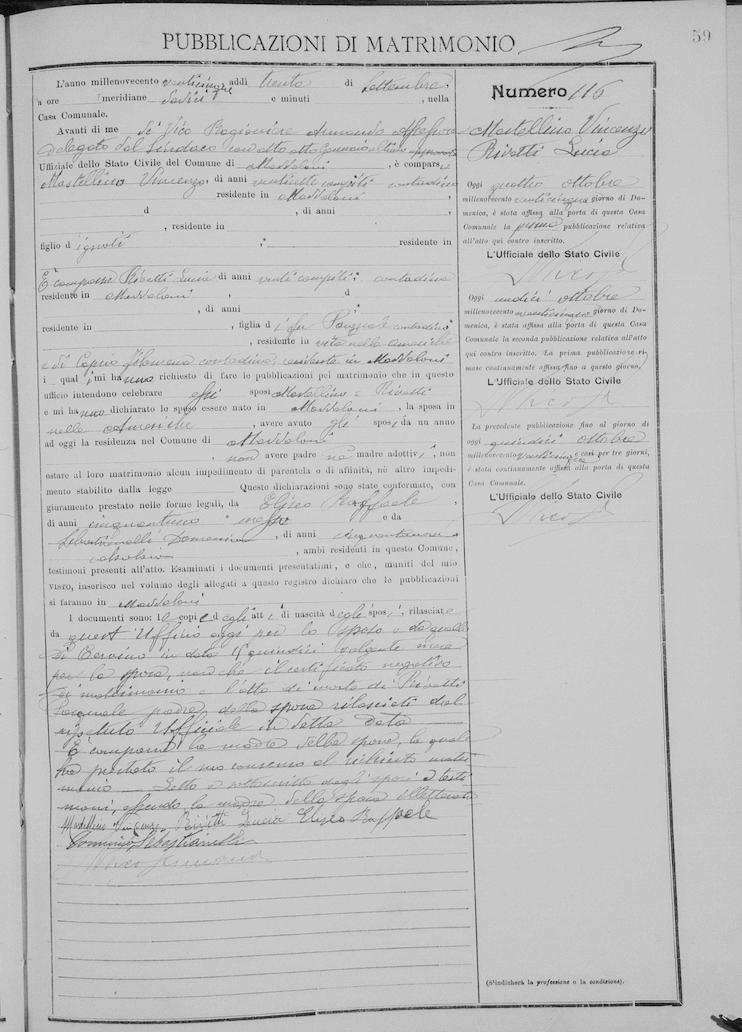 59
PUBBLICAZIONI DI MATRIMONIO
L'anno millenovecento venticinque addì trenta di Settembre,
a ore sedici meridiane e minuti , nella
Casa Comunale.
Avanti di me di Vico Ragioniere Armando Assessore
delegato dal Sindaco con atto otto Gennaio ultimo
Uffiziale dello Stato Civile del Comune di Maddaloni , è comparso
Mastellino Vincenzo, di anni ventisette compiti contadino
residente in Maddaloni ,
d , di anni ,
, residente in
figlio d ignoti residente in
È comparsa Rivetti Lucia di anni venti compiti, contadina
residente in Maddaloni , d
, di anni ,
residente in , figlia di fu Pasquale contadino
, residente in vita nelle Americhe
e di Caprio Filomena contadina, residente in Maddaloni
i quali mi hanno richiesto di fare le pubblicazioni pei matrimonio che in questo
ufficio intendono celebrare essi sposi Mastellino e Rivetti
e mi hanno dichiarato lo sposo essere nato in Maddaloni , la sposa in
nelle Americhe , avere avuto gli sposi da un anno
ad oggi la residenza nel Comune di Maddaloni
, non avere padre nè madre adottivi, non
ostare al loro matrimonio alcun impedimento di parentela o di affinità, nè altro impedi-
mento stabilito dalla legge Queste dichiarazioni sono state confermate, con
giuramento prestato nelle forme legali, da Eliseo Raffaele ,
di anni cinquantuno e da
Domenico , di anni
calzolaio , ambi residenti in questo Comune,
testimoni presenti all'atto. Esaminati i documenti presentatimi, e che, muniti del mio
visto, inserisco nel volume degli allegati a questo registro dichiaro che le pubblicazioni
si faranno in Maddaloni
I documenti sono: le copie degli atti di nascità degli sposi, rilasciate
da quest'Ufficio oggi per lo sposo e da quello
di Cervino in data quindici volgente mese
per la sposa, nonchè il certificato negativo
di matrimonio e l'atto di morte di Rivetti
Pasquale padre della sposa rilasciati dal
ripetuto Ufficiale in detta data
È comparsa la madre della sposa, la quale
ha prestato il suo consenso al richiesto matri
monio. Letto e sottoscritto dagli sposi e testi
moni, essendo la madre della sposa illetterata
Mastellino Vincenzo Rivetti Lucia Eliseo Raffaele
Domenico Sebastianelli
di Vico Armando
Numero 116
Mastellino Vincenzo
Rivetti Lucia
Oggi quattro ottobre
millenovecento venticinque giorno di Do-
menica, è stata affissa alla porta di questa Casa
Comunale la prima pubblicazione relativa
all'atto qui contro inscritto.
L'Ufficiale dello Stato Civile
Oggi undici ottobre
millenovecento venticinque giorno di Do-
menica, è stata affissa alla porta di questa Casa
Comunale la seconda pubblicazione relativa all'atto
qui contro inscritto. La prima pubblicazione ri-
mase continuamente affissa fino a questo giorno.
L'Ufficiale dello Stato Civile
La precedente pubblicazione fino al giorno di
oggi quindici ottobre
millenovecento venticinque e così per tre giorni,
è stata continuamente affissa alla porta di questa
Casa Comunale.
L'Ufficiale dello Stato Civile
(S'indicherà la professione o la condizione).